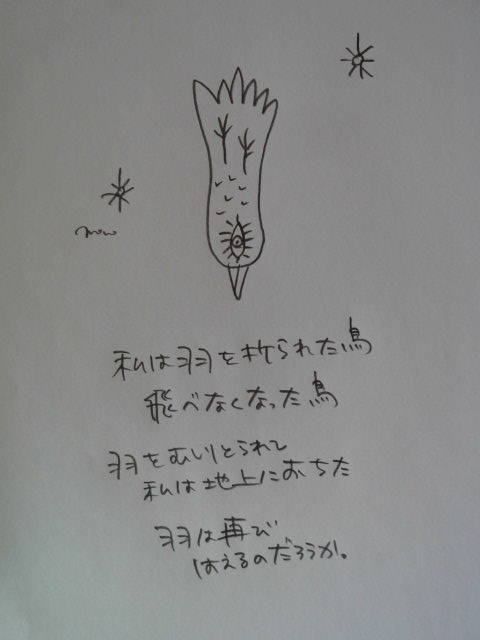 mow
私は羽を折られた鳥
飛べなくなった鳥
羽をむしりとられて
私は地上におちた
羽は再び
はえるのだろうか。